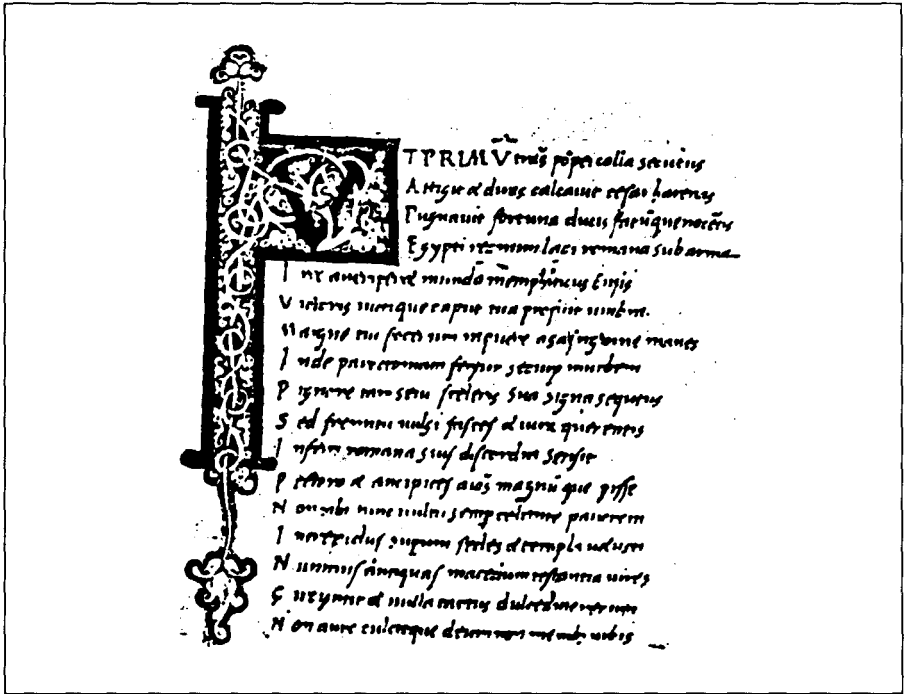 T PRIMV̄ trās pōpei colla secutus
Attigit & diras calcauit cesar harenas
Pugnauit fortuna ducis fatūque nocētis
Egypti regnum laci romana sub arma
I ret an eriperet mundo memphiticus ensis
V ictoris uictique caput tua profuit umbra.
Magne tui manes
I nde
P ignore tam sceleris sua signa sequens
S ed fremitu uulgi fasces & iura querentis
I nferri romana suis discordia sensit
P ectora & ancipites aīos magnū que
N on sibi uultu semp celante pauorem
I ntrepidus supum sedes & templa uetusti
N uminis antiquas macetum testantia uires
C ircumit & nulla captus dulcedine rerum
N on auro cultuque deum non menibus urbis